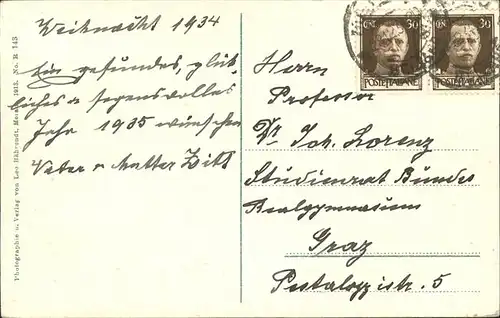 Weihnacht 1934
Ein gesundes, glük-
liches u segensvolles
Jahr 1935 wünschen
Vater u Mutter Zitt
Herrn
Professor
Dr Joh. Lorenz
Studienrat Bundes
Realgymnasium
Graz
Pestalozzistr. 5
CNT. 30
CEN. 30
POSTE ITALIANE
POSTE ITALIANE
Photographie u. Verlag von Leo Bährendt, 1913. No. R 143